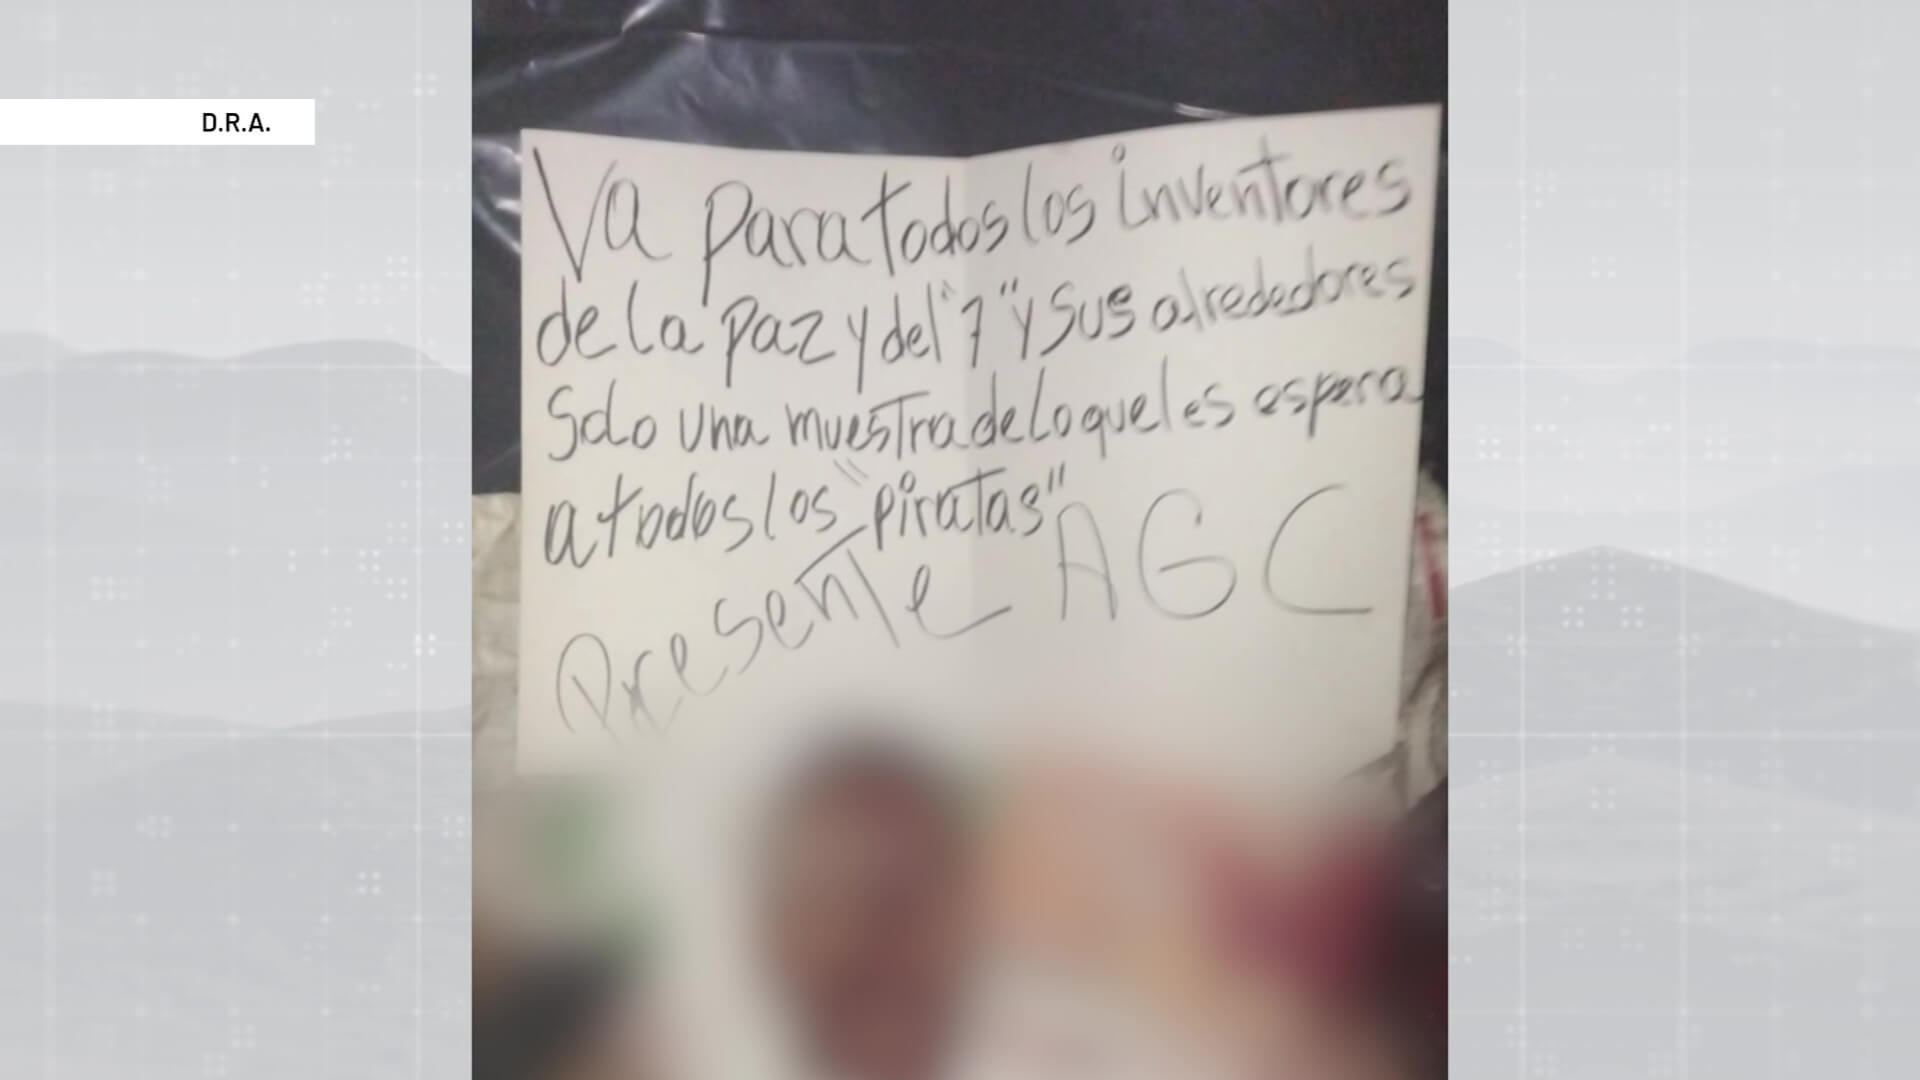 D.R.A.
Va para todos los inventores
de la paz y del "7" y sus alrededores
Solo una muestra de lo que les espera
a todos los "piratas"
Presente AGC